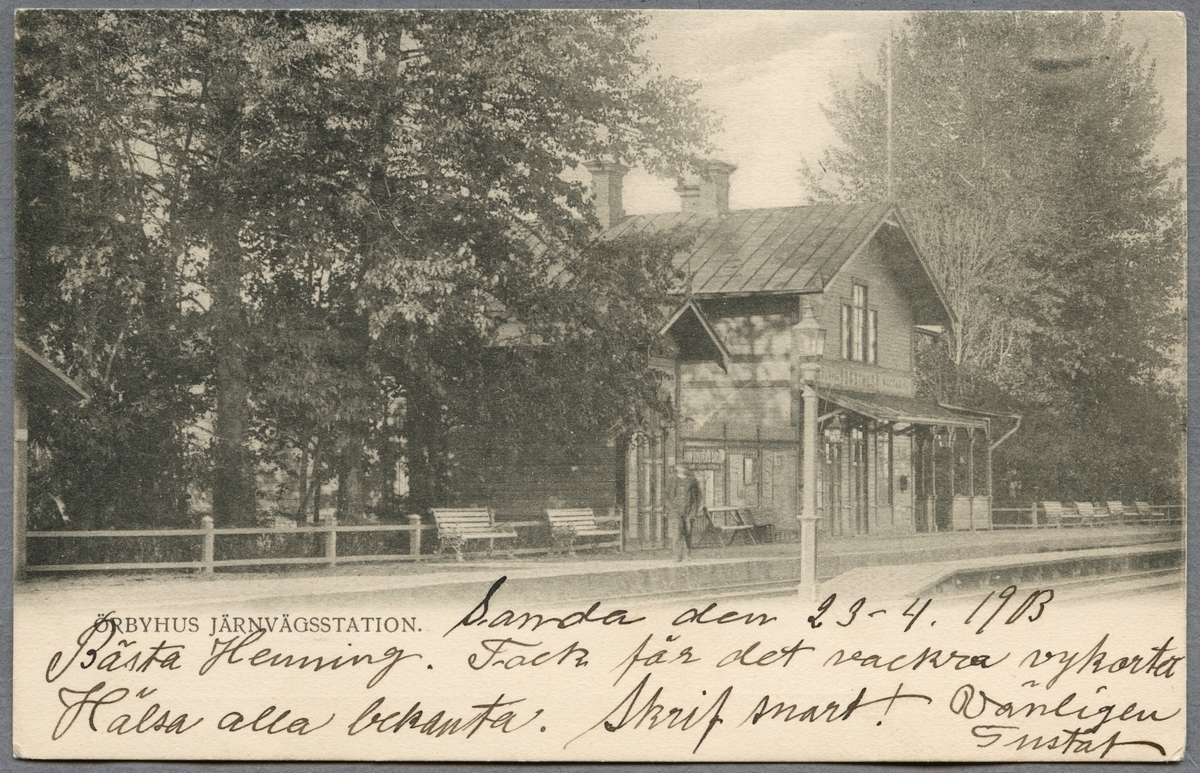 ÖRBYHUS JÄRNVÄGSSTATION.
Sanda den 23-4. 1903
Bästa Henning. Tack får det vackra vykortet
Hälsa alla bekanta. Skrif snart! Vänligen
Gustaf